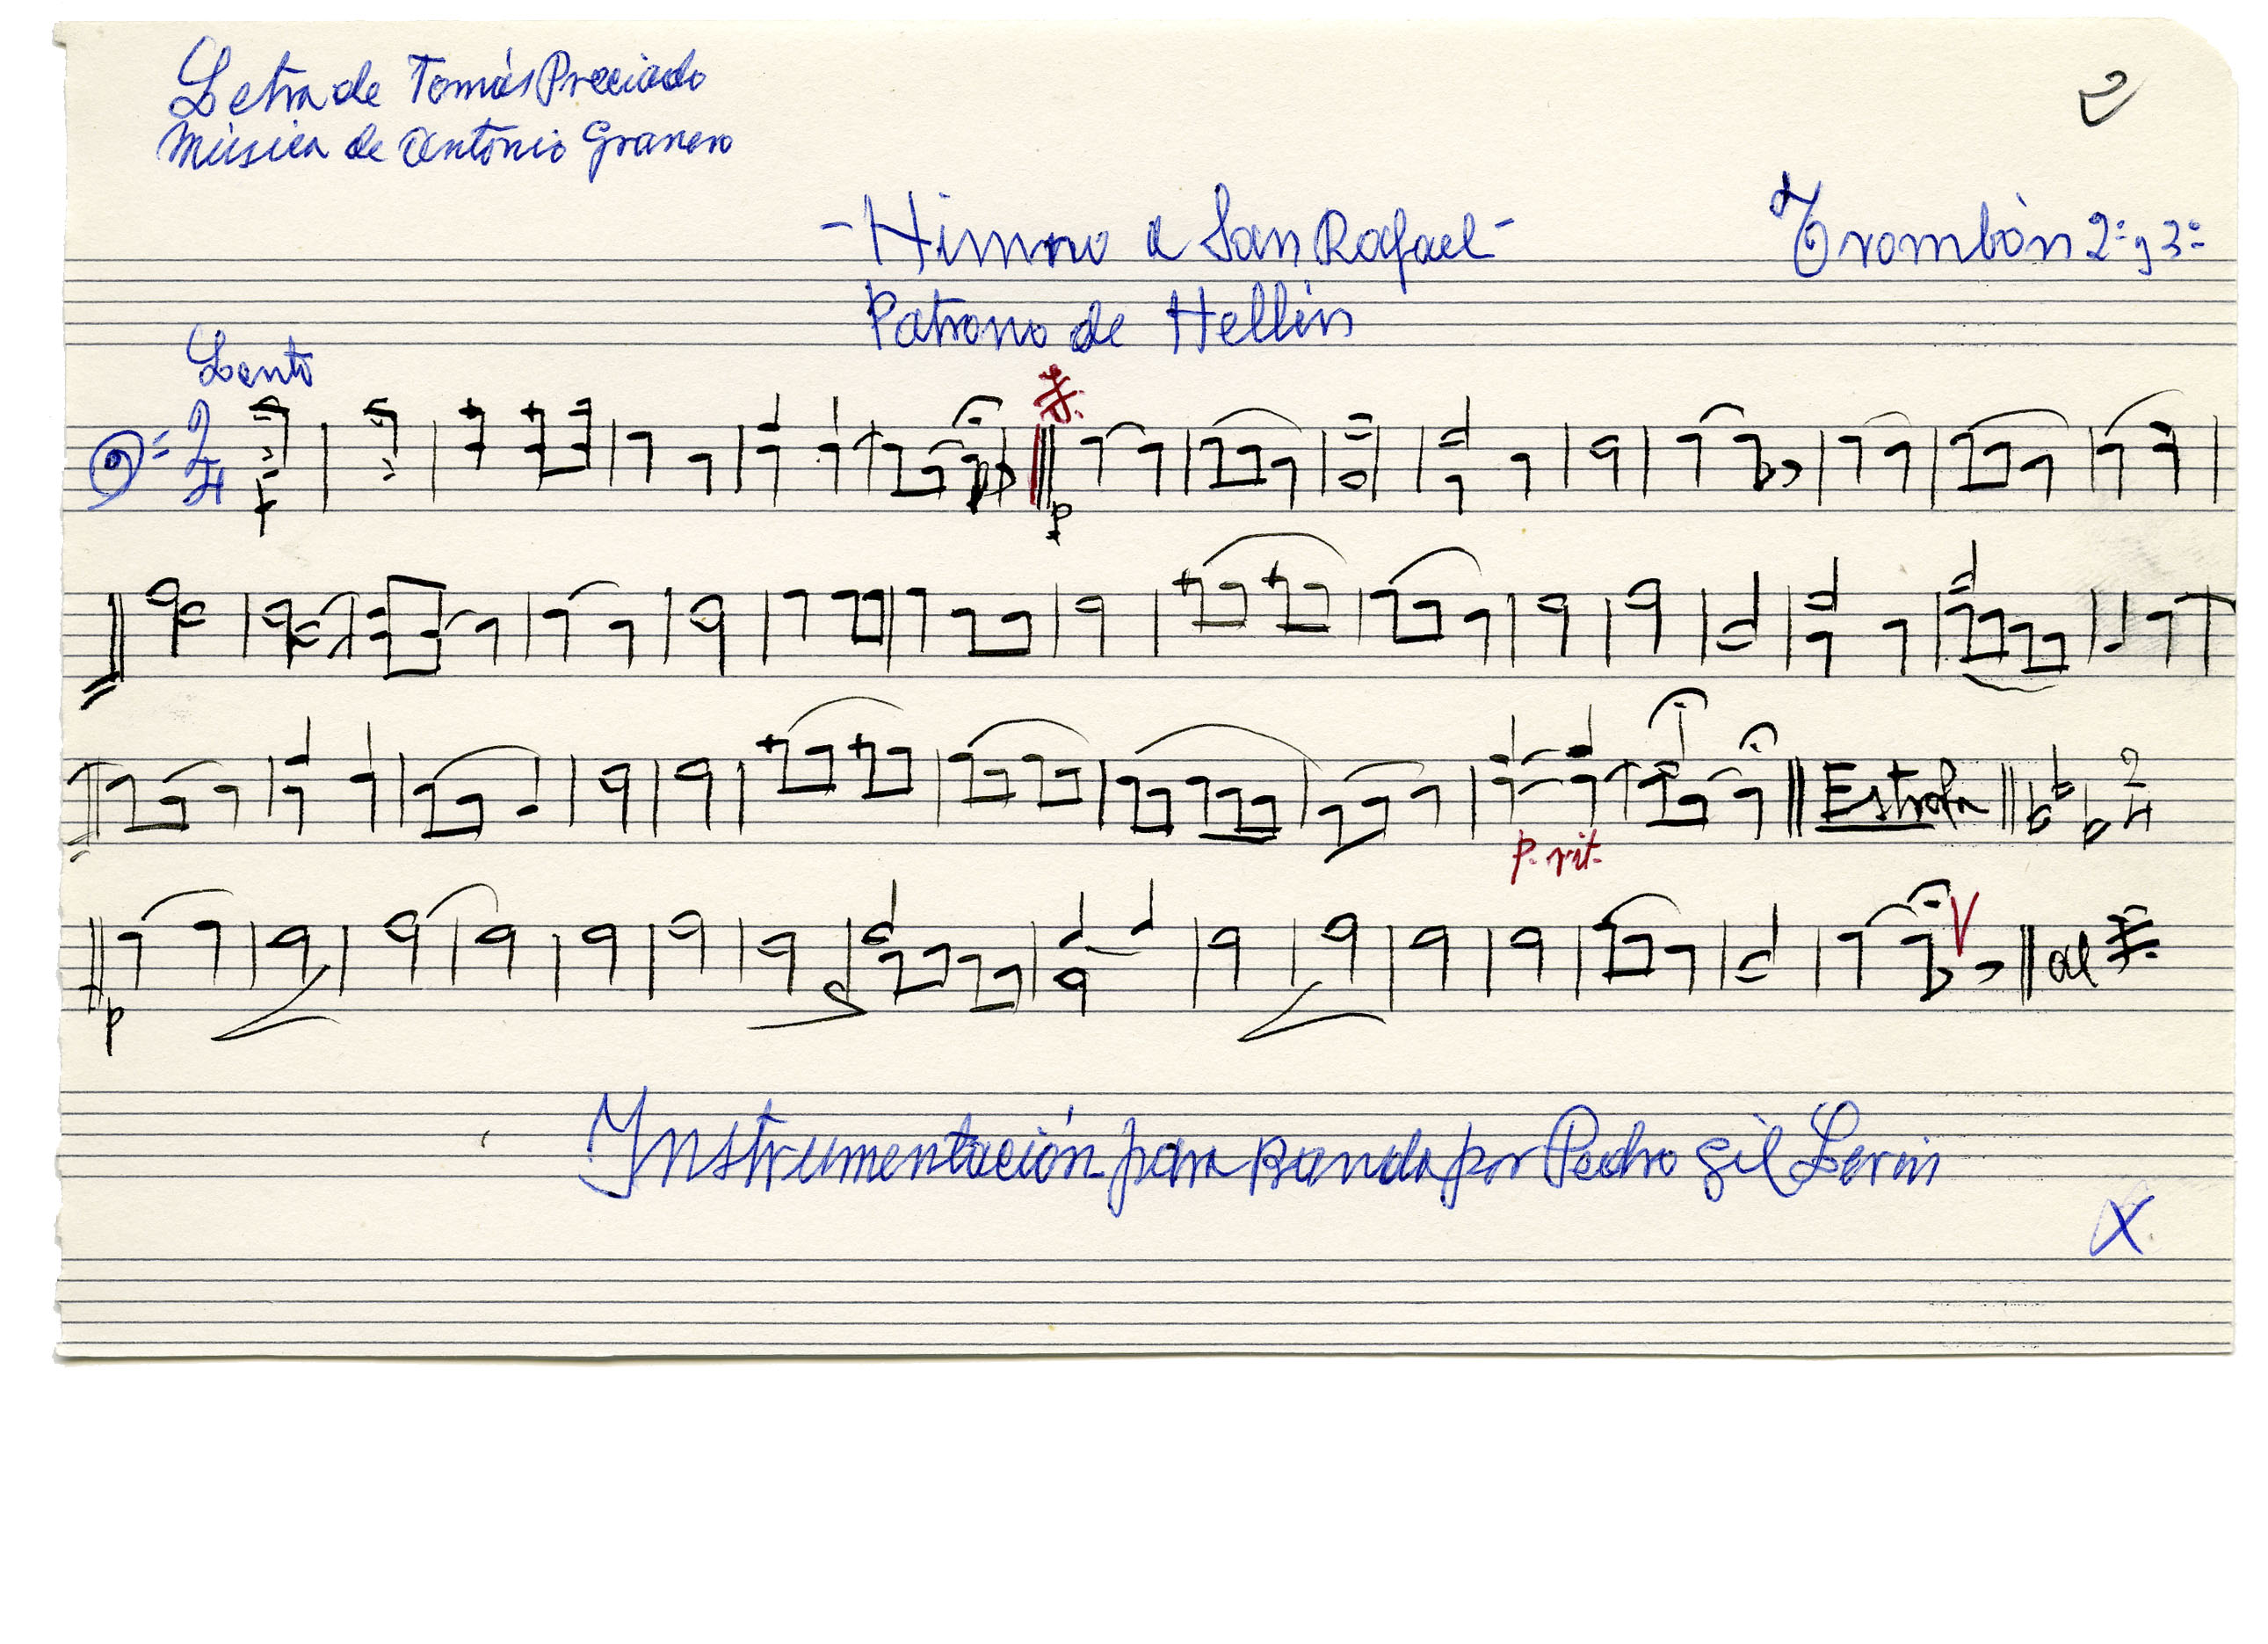 Letra de Tomás Preciado
Música de Antonio Granero
2
- Himno a San Rafael -
Trombón 2º y 3º
Patrono de Hellín
Lento
2/4
f
p
p. rit.
Estrofa
2/4
p
al
Instrumentación para Banda por Pedro Gil Lerín
X